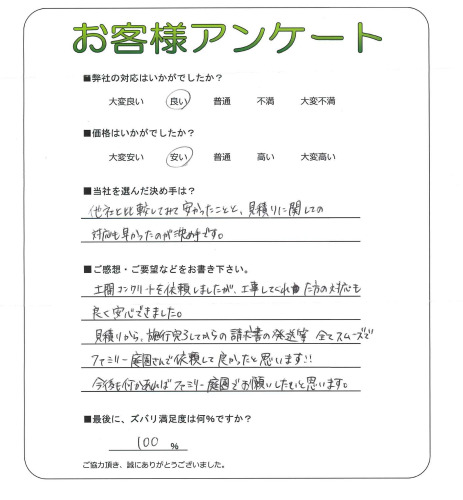 お客様アンケート
■弊社の対応はいかがでしたか?
大変良い 良い 普通 不満 大変不満
■価格はいかがでしたか?
大変安い 安い 普通 高い 大変高い
■当社を選んだ決め手は?
他社と比較してみて安かったことと、見積りに関しての
対応も早かったのが決め手です。
■ご感想・ご要望などをお書き下さい。
土間コンクリートを依頼しましたが、工事してくれた方の対応も
良く安心できました。
見積りから、施行完了してからの請求書の発送等 全てスムーズで
ファミリー庭園さんで依頼して良かったと思います!!
今後も何かあればファミリー庭園でお願いしたいと思います。
■最後に、ズバリ満足度は何%ですか?
100 %
ご協力頂き、誠にありがとうございました。